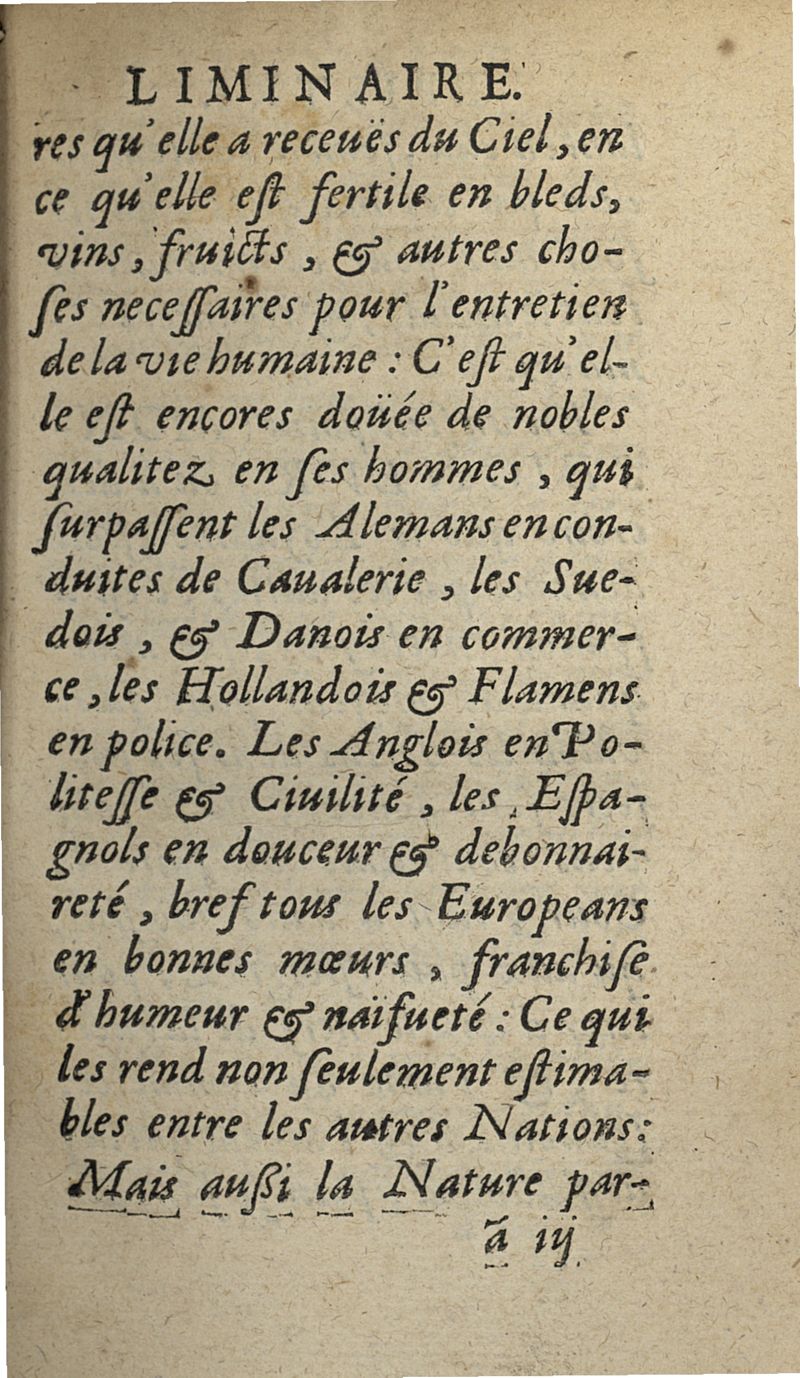 LIMINAIRE.
res qu'elle a receuës du Ciel, en
ce qu'elle eſt fertile en bleds,
vins, fruicts, & autres cho-
ſes neceſſaires pour l'entretien
de la vie humaine : C'eſt qu'el-
le eſt encores doüée de nobles
qualitez en ſes hommes, qui
ſurpaſſent les Alemans en con-
duites de Caualerie, les Sue-
dois, & Danois en commer-
ce, les Hollandois & Flamens
en police. Les Anglois en Po-
liteſſe & Ciuilité, les Eſpa-
gnols en douceur & debonnai-
reté, bref tous les Europeans
en bonnes mœurs, franchiſe
d'humeur & naïfueté : Ce qui
les rend non ſeulement eſtima-
bles entre les autres Nations:
Mais außi la Nature par-
ã iij